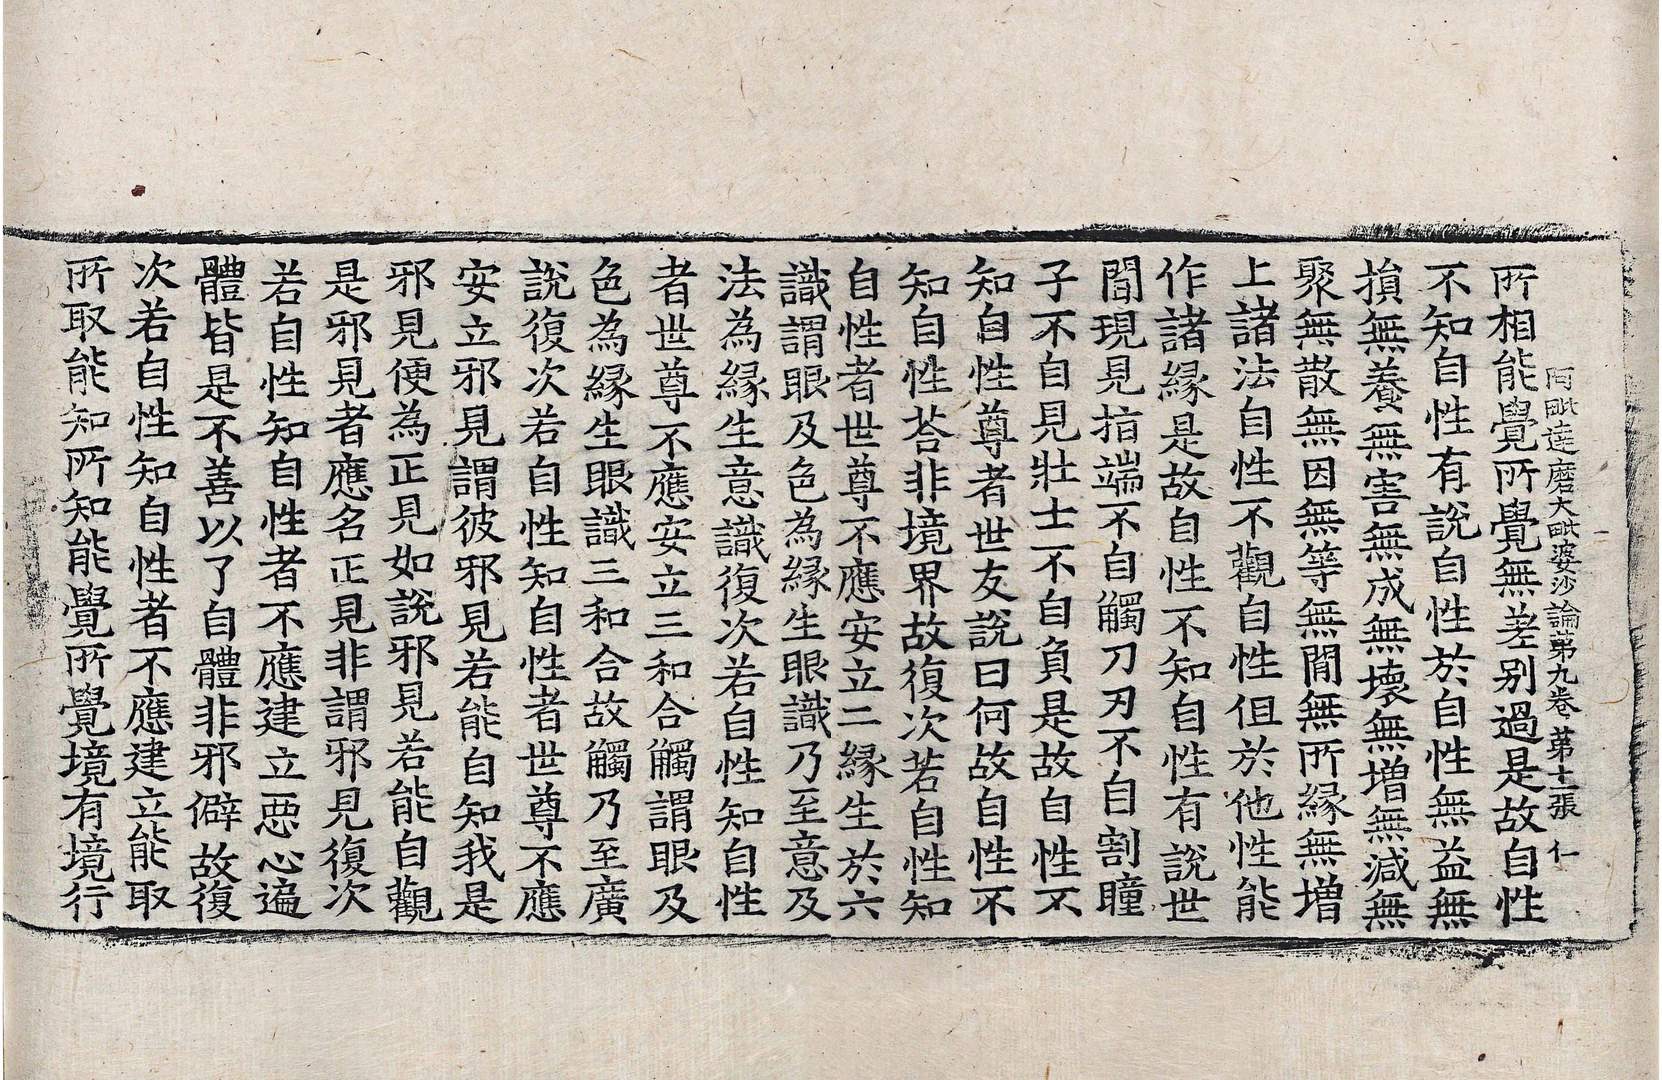 阿毗達磨大毗婆沙論第九卷 第十二張 仁
所相能覺所覺無差別過是故自性
不知自性有說自性於自性無益無
損無養無害無成無壞無增無減無
聚無散無因無等無間無所緣無增
上諸法自性不觀自性但於他性能
作諸緣是故自性不知自性有說世
間現見指端不自觸刀刃不自割瞳
子不自見壯士不自負是故自性不
知自性尊者世友說曰何故自性不
知自性荅非境界故復次若自性知
自性者世尊不應安立二緣生於六
識謂眼及色為緣生眼識乃至意及
法為緣生意識復次若自性知自性
者世尊不應安立三和合觸謂眼及
色為緣生眼識三和合故觸乃至廣
說復次若自性知自性者世尊不應
安立邪見謂彼邪見若能自知我是
邪見便為正見如說邪見若能自觀
是邪見者應名正見非謂邪見復次
若自性知自性者不應建立惡心遍
體皆是不善以了自體非邪僻故復
次若自性知自性者不應建立能取
所取能知所知能覺所覺境有境行